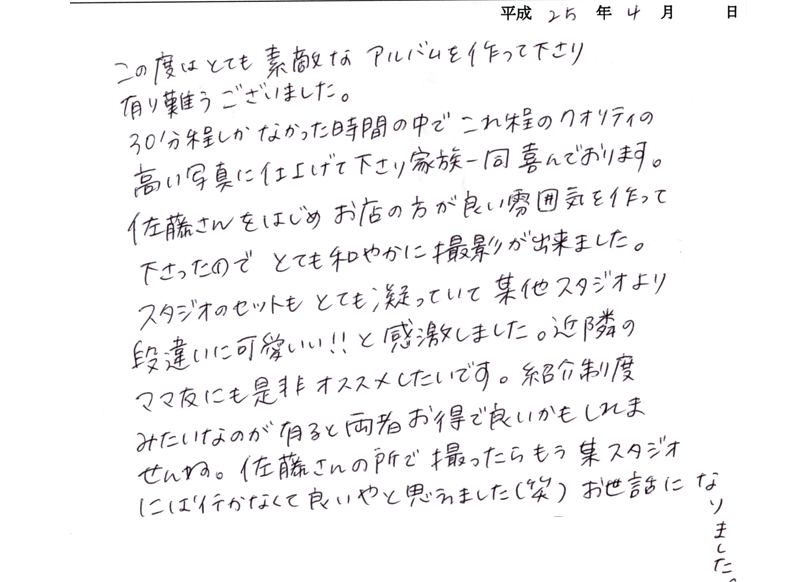 平成 25 年 4 月 日
この度はとても素敵な アルバムを作って下さり
有り難うございました。
30分程しかなかった時間の中で これ程のクオリティの
高い写真に仕上げて下さり家族一同 喜んでおります。
佐藤さんをはじめ お店の方が良い雰囲気を作って
下さったので とても和やかに撮影が出来ました。
スタジオのセットも とても凝っていて 某他スタジオより
段違いに可愛いい!!と感激しました。近隣の
ママ友にも是非 オススメしたいです。紹介制度
みたいなのが 有ると両者お得で良いかもしれま
せんね。佐藤さんの所で 撮ったらもう 某スタジオ
には行かなくて良いやと思えました(笑) お世話に なりました。